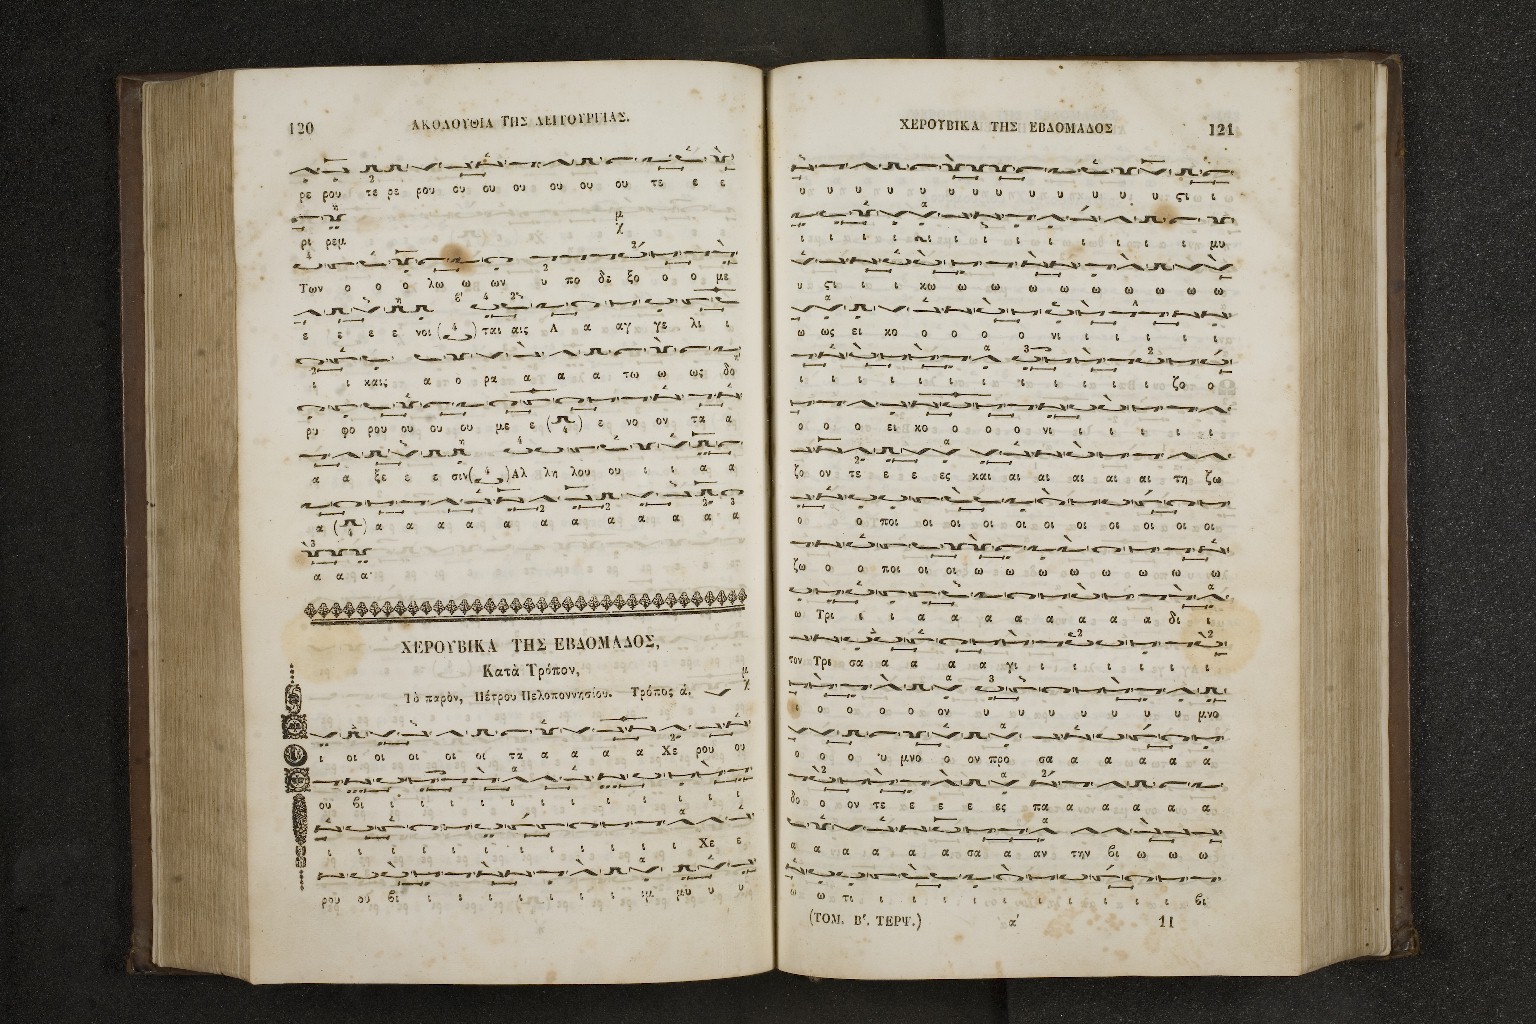 120
ΑΚΟΛΟΥΘΙΑ ΤΗΣ ΛΕΙΤΟΥΡΓΙΑΣ.
ρε ρου τε ρε ρου ου ου ου ου ου ου τε ε ε
ρι ρεμ
Των ο ο ο λω ω ων υ πο δε ξο ο ο με
ε ε ε ε νοι ται αις Α α αγ γε λι ι
ι ι καις α ο ρα α α α τω ω ως δο
ρυ φο ρου ου ου ου με ε ε νο ον τα α
α α ξε ε ε σιν Αλ λη λου ου ι ι α α
α α α α α α α α α α α α α
α α α
ΧΕΡΟΥΒΙΚΑ ΤΗΣ ΕΒΔΟΜΑΔΟΣ,
Κατὰ Τρόπον,
Τὸ παρὸν, Πέτρου Πελοποννησίου. Τρόπος ά.
ι οι οι οι οι οι τα α α α α Χε ρου ου
ου βι ι ι ι ι ι ι ι ι ι ι ι ι
ι ι ι ι ι ι ι ι ι ι ι ι Χε ε
ρου ου βι ι ι ι ι ι ι ι ιμ μυ υ υ
ΧΕΡΟΥΒΙΚΑ ΤΗΣ ΕΒΔΟΜΑΔΟΣ
121
υ υ υ υ υ υ υ υ υ υ υ υ υ ςι ι
υ ςι ι ι κω ω ω ω ω ω ω ω ω ω
ω ως ει κο ο ο ο ο νι ι ι ι ι ι
ι ι ι ι ι ι ι ι ι ι ι ι ζο ο
ο ο ο ει κο ο ο ο νι ι ι ι ι ι
ζο ον τε ε ε ες και αι αι αι αι αι τη ζω
ο ο ποι οι οι οι οι οι οι οι οι οι οι
ζω ο ο ποι οι οι ω ω ω ω ω ω ω ω
ω Τρι ι ι α α α α α α α α δι ι
τον Τρι σα α α α α γι ι ι ι ι ι ι
ι ο ο ο ο ον υ υ υ υ υ υ υ μνο
ο ο ο υ μνο ο ον προ σα α α α α α
δο ο ον τε ε ε ε ες πα α α α α α
α α α α α α σα α αν την βι ω ω ω
ω ω τι ι ι ι ι ι ι ι ι ι ι βι
(ΤΟΜ. Β'. ΤΕΡΨ.) α' 11